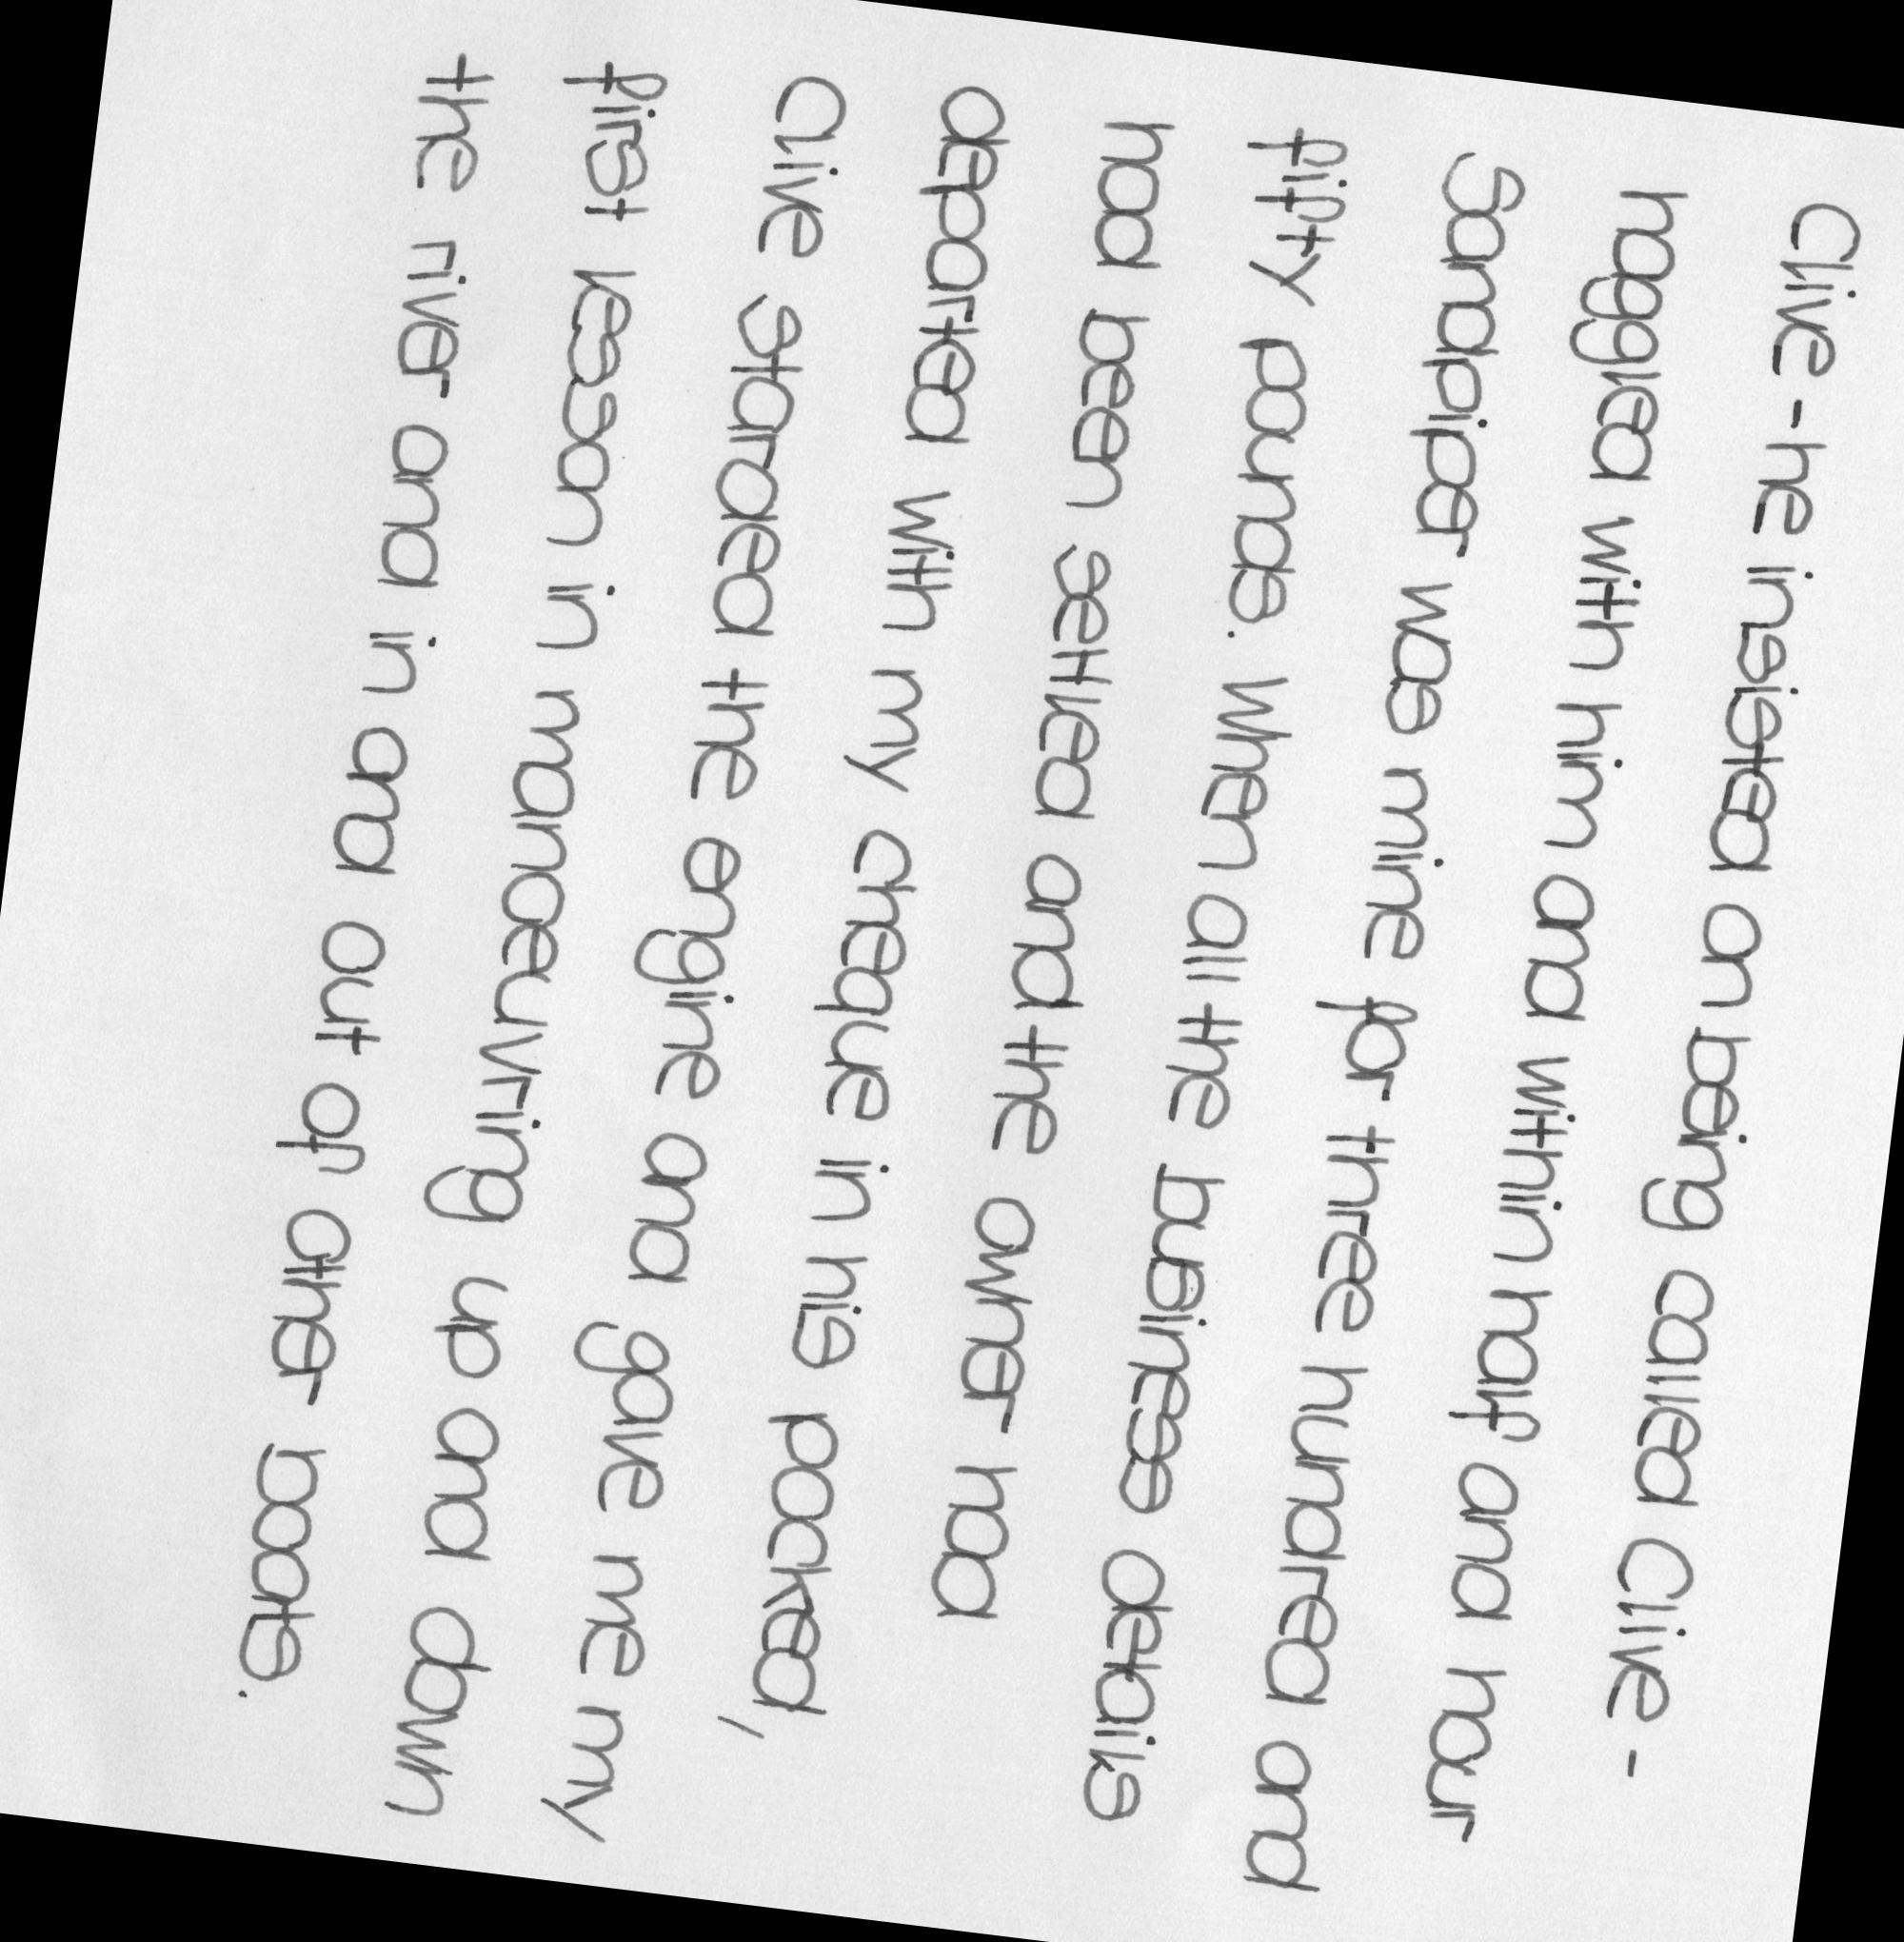 Clive - he insisted on being called Clive -
haggled with him and within half and hour
Sandpiper was mine for three hundred and
fifty pounds. When all the business details
had been settled and the owner had
departed with my cheque in his pocked,
Clive starded the engine and gave me my
first lesson in manoeuvring up and down
the river and in and out of other boats.